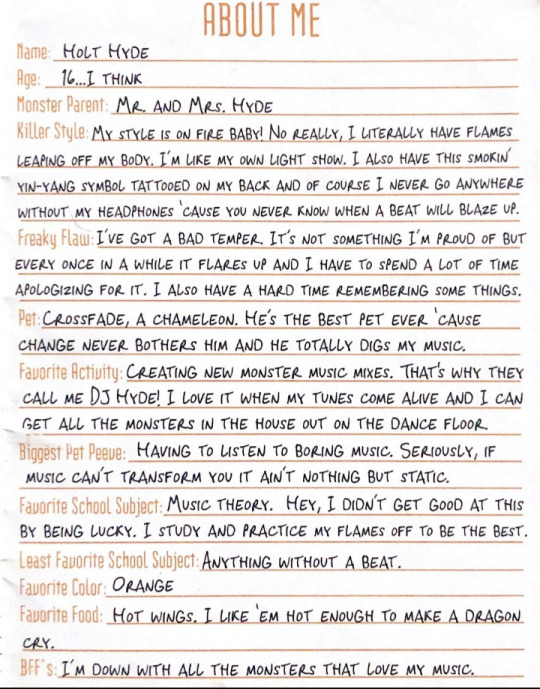 ABOUT ME
Name: HOLT HYDE
Age: 16...I THINK
Monster Parent: MR. AND MRS. HYDE
Killer Style: MY STYLE IS ON FIRE BABY! NO REALLY, I LITERALLY HAVE FLAMES
LEAPING OFF MY BODY. I'M LIKE MY OWN LIGHT SHOW. I ALSO HAVE THIS SMOKIN'
YIN-YANG SYMBOL TATTOOED ON MY BACK AND OF COURSE I NEVER GO ANYWHERE
WITHOUT MY HEADPHONES 'CAUSE YOU NEVER KNOW WHEN A BEAT WILL BLAZE UP.
Freaky Flaw: I'VE GOT A BAD TEMPER. IT'S NOT SOMETHING I'M PROUD OF BUT
EVERY ONCE IN A WHILE IT FLARES UP AND I HAVE TO SPEND A LOT OF TIME
APOLOGIZING FOR IT. I ALSO HAVE A HARD TIME REMEMBERING SOME THINGS.
Pet: CROSSFADE, A CHAMELEON. HE'S THE BEST PET EVER 'CAUSE
CHANGE NEVER BOTHERS HIM AND HE TOTALLY DIGS MY MUSIC.
Favorite Activity: CREATING NEW MONSTER MUSIC MIXES. THAT'S WHY THEY
CALL ME DJ HYDE! I LOVE IT WHEN MY TUNES COME ALIVE AND I CAN
GET ALL THE MONSTERS IN THE HOUSE OUT ON THE DANCE FLOOR.
Biggest Pet Peeve: HAVING TO LISTEN TO BORING MUSIC. SERIOUSLY, IF
MUSIC CAN'T TRANSFORM YOU IT AIN'T NOTHING BUT STATIC.
Favorite School Subject: MUSIC THEORY. HEY, I DIDN'T GET GOOD AT THIS
BY BEING LUCKY. I STUDY AND PRACTICE MY FLAMES OFF TO BE THE BEST.
Least Favorite School Subject: ANYTHING WITHOUT A BEAT.
Favorite Color: ORANGE
Favorite Food: HOT WINGS. I LIKE 'EM HOT ENOUGH TO MAKE A DRAGON
CRY.
BFF's: I'M DOWN WITH ALL THE MONSTERS THAT LOVE MY MUSIC.